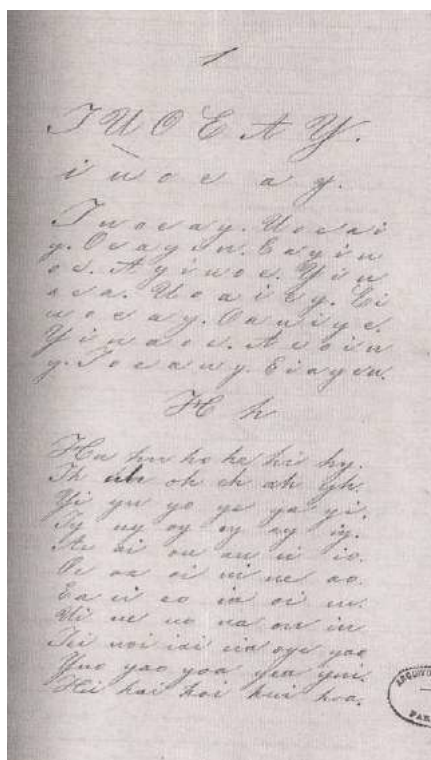 1
I U O E A Y.
i u o e a y.
I u o e a y. U o e a i
y. O e a y i u. E a y i u
o e. A y i u o e. Y i u
o e a. U o a i e y. E i
u o e a y. O a u i y e.
Y i u a o e. A e o i u
y. I o e a u y. E i a y o u.
H h
Ha hu ho he hi hy.
Ih uh oh eh ah yh.
Yi yu yo ye ya yi.
Iy uy oy ey ay iy.
Ae ai ou au ui io.
Oe oa oi ui ue ao.
Ea ei eo ia oi eu.
Ui ue uo ua ou iu
Iei uoi iai eia oye yao
Yuo yao yoa yea yui.
Hei hai hoi hui hoa.
ARQUIVO
PAR